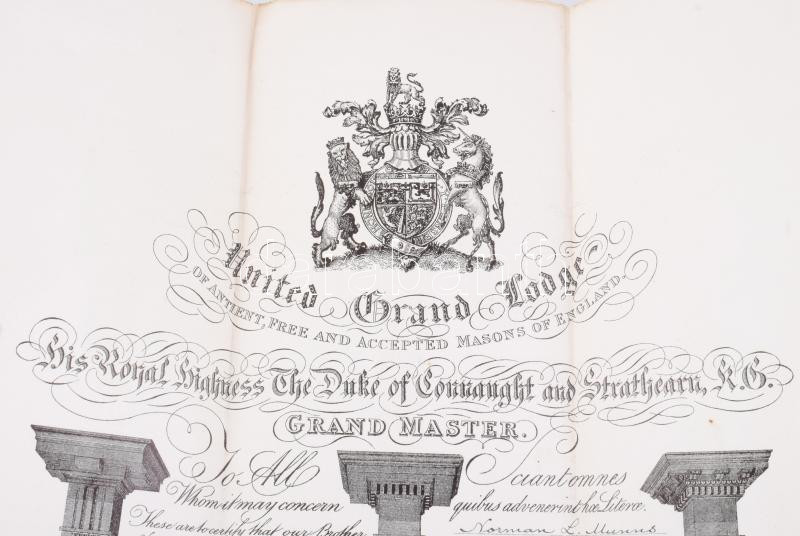 United Grand Lodge
OF ANTIENT, FREE AND ACCEPTED MASONS OF ENGLAND,
His Royal Highness The Duke of Connaught and Strathearn, K.G.
GRAND MASTER.
To All
Whom it may concern
These are to certify that our Brother
Sciant omnes
quibus advenerint hæ Literæ.
Norman L. Munns